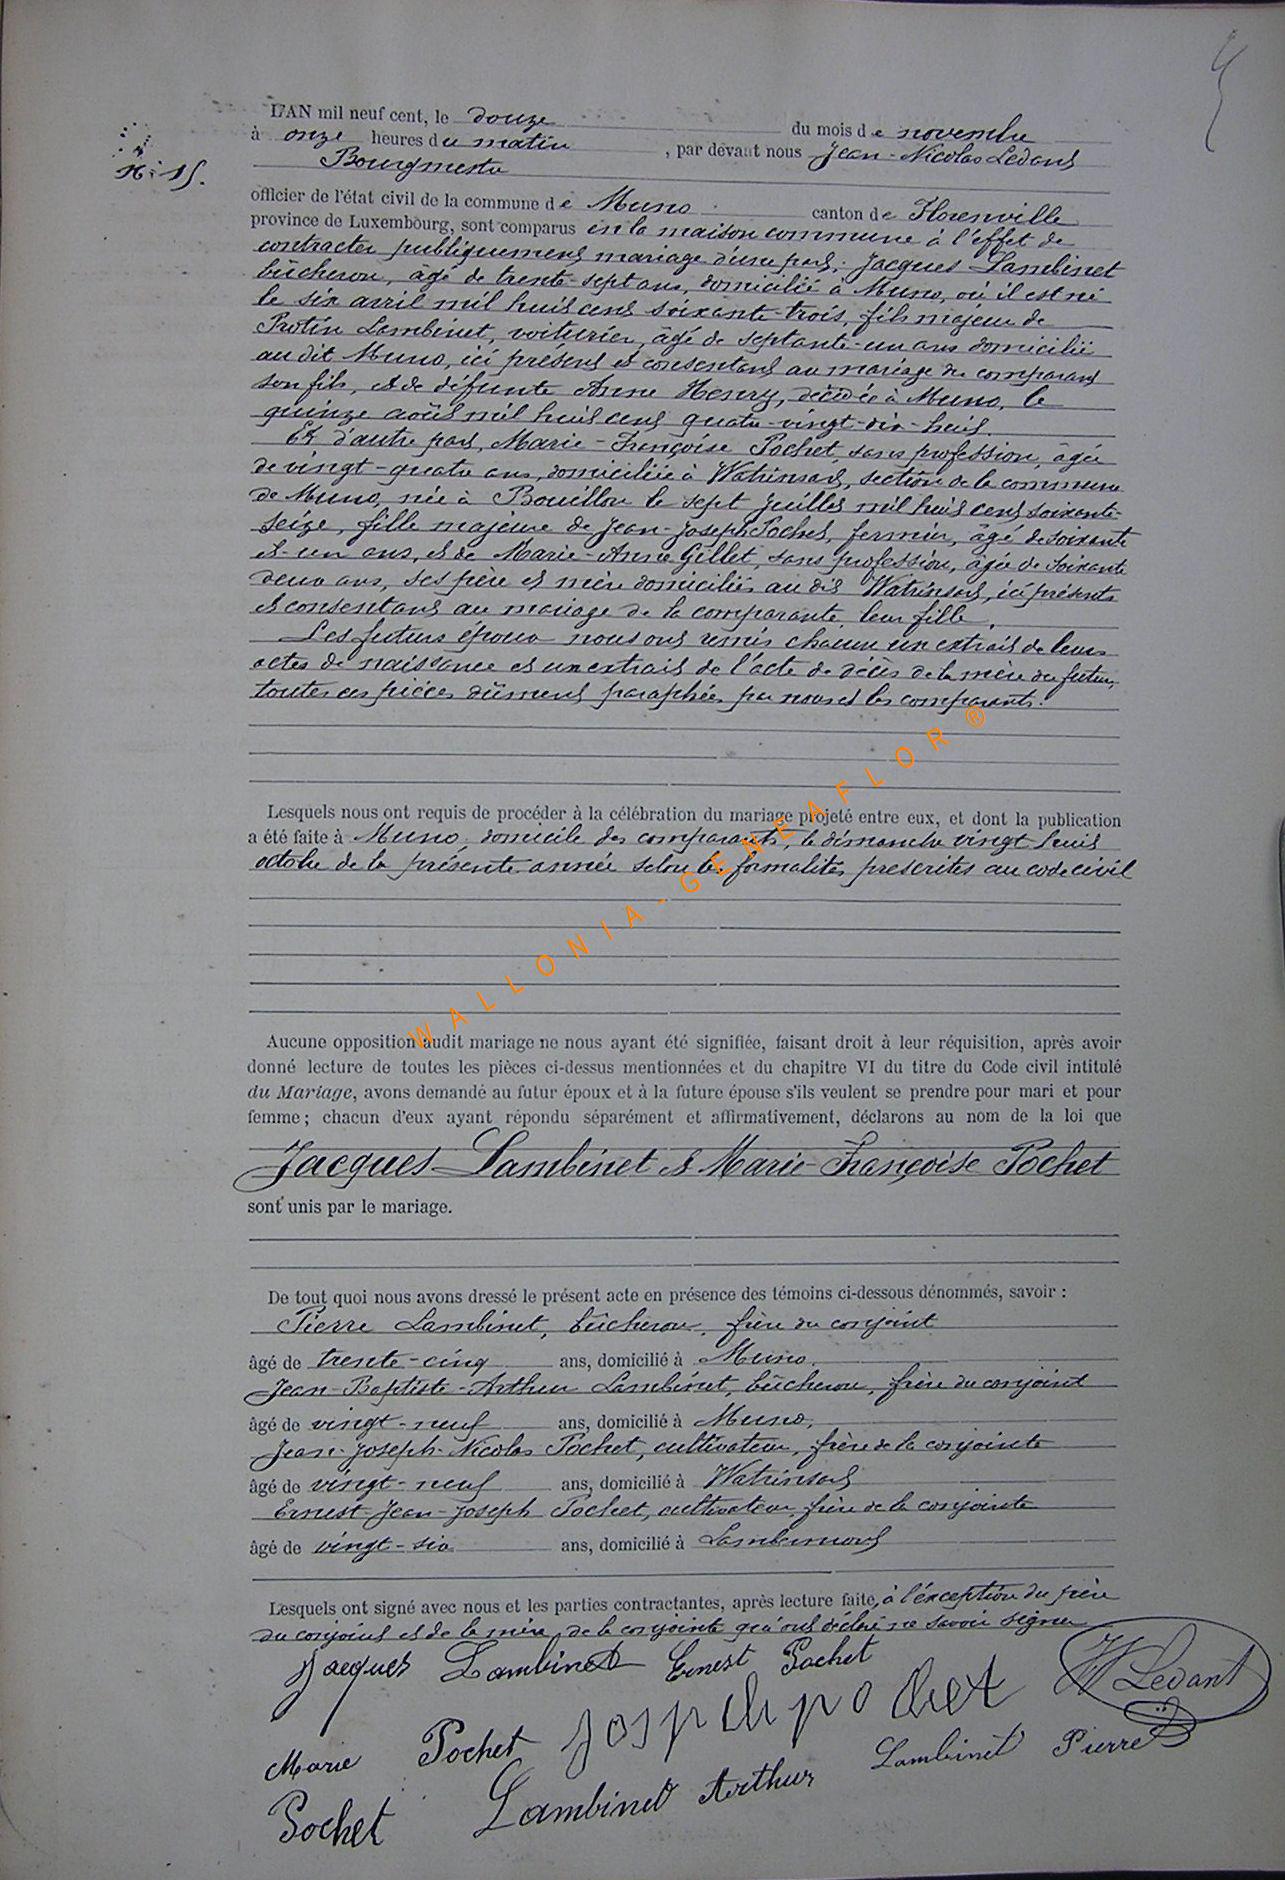 L'AN mil neuf cent, le douze du mois de novembre
à onze heures du matin, par devant nous Jean-Nicolas Ledant
Bourgmestre
N° 15.
officier de l'état civil de la commune de Muno canton de Florenville
province de Luxembourg, sont comparus en la maison commune à l'effet de
contracter publiquement mariage d'une part, Jacques Lambinet
bûcheron, âgé de trente-sept ans, domicilié à Muno, où il est né
le six avril mil huit cent soixante-trois, fils majeur de
Protin Lambinet, voiturier, âgé de septante-un ans domicilié
au dit Muno, ici présent et consentant au mariage du comparant
son fils, et de défunte Anne Henry, décédée à Muno, le
quinze août mil huit cent quatre-vingt-dix-huit.
Et d'autre part, Marie-Françoise Pochet, sans profession, âgée
de vingt-quatre ans, domiciliée à Watrinsart, section de la commune
de Muno, née à Bouillon le sept juillet mil huit cent soixante-
seize, fille majeure de Jean-Joseph Pochet, fermier, âgé de soixante
et un ans, et de Marie-Anne Gillet, sans profession, âgée de soixante
deux ans, ses père et mère domiciliés au dit Watrinsart, ici présents
et consentant au mariage de la comparante, leur fille.
Les futurs époux nous ont remis chacun un extrait de leurs
actes de naissance et un extrait de l'acte de décès de la mère du futur,
toutes ces pièces dûment paraphées par nous et les comparants.
Lesquels nous ont requis de procéder à la célébration du mariage projeté entre eux, et dont la publication
a été faite à Muno, domicile des comparants, le dimanche vingt huit
octobre de la présente année selon les formalités prescrites au code civil
WALLONIA-GENEAFLOR ®
Aucune opposition audit mariage ne nous ayant été signifiée, faisant droit à leur réquisition, après avoir
donné lecture de toutes les pièces ci-dessus mentionnées et du chapitre VI du titre du Code civil intitulé
du Mariage, avons demandé au futur époux et à la future épouse s'ils veulent se prendre pour mari et pour
femme ; chacun d'eux ayant répondu séparément et affirmativement, déclarons au nom de la loi que
Jacques Lambinet et Marie-Françoise Pochet
sont unis par le mariage.
De tout quoi nous avons dressé le présent acte en présence des témoins ci-dessous dénommés, savoir :
Pierre Lambinet, bûcheron, frère du conjoint
âgé de trente-cinq ans, domicilié à Muno.
Jean-Baptiste-Arthur Lambinet, bûcheron, frère du conjoint
âgé de vingt-neuf ans, domicilié à Muno,
Jean-Joseph-Nicolas Pochet, cultivateur, frère de la conjointe
âgé de vingt-neuf ans, domicilié à Watrinsart
Ernest-Jean-Joseph Pochet, cultivateur, frère de la conjointe
âgé de vingt-six ans, domicilié à Lambermont
Lesquels ont signé avec nous et les parties contractantes, après lecture faite, à l'exception du père
du conjoint et de la mère de la conjointe qui ont déclaré ne savoir signer
Jacques Lambinet Ernest Pochet
Ledant
Marie Pochet Joseph pochet
Lambinet Pierre
Pochet Lambinet Arthur